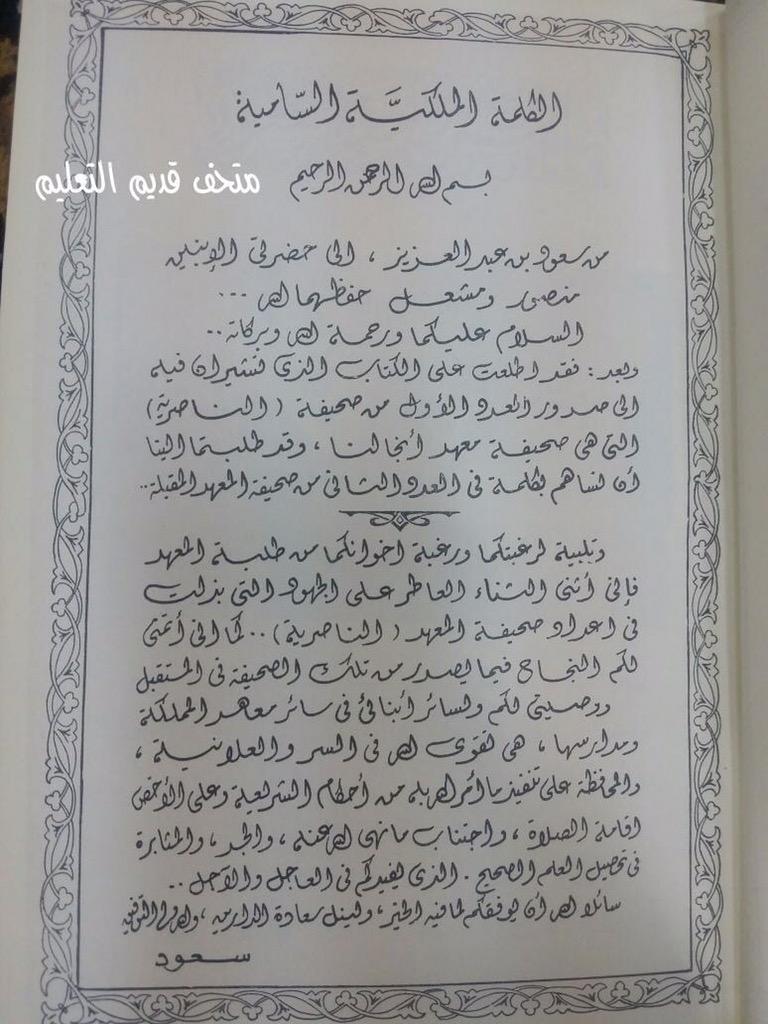 الكلمة الملكيَّة السَّامية
متحف قديم التعليم
بسم الله الرحمن الرحيم
من سعود بن عبد العزيز ، الى حضرتي الإبنين
منصور ومشعل حفظهما الله ...
السلام عليكما ورحمة الله وبركاته ..
وبعد : فقد اطلعت على الكتاب الذى تشيران فيه
الى صدور العدد الأول من صحيفة ( الناصرية )
التى هى صحيفة معهد أنجالنا ، وقد طلبتما الينا
أن نساهم بكلمة فى العدد الثانى من صحيفة المعهد المقبلة ...
وتلبية لرغبتكما ورغبة اخوانكما من طلبة المعهد
فإنى أثنى الثناء العاطر على الجهود التى بذلت
فى اعداد صحيفة المعهد ( الناصرية ) .. كما انى أتمنى
لكم النجاح فيما يصدر من تلك الصحيفة فى المستقبل
ووصيتى لكم ولسائر أبنائى فى سائر معاهد المملكة
ومدارسها ، هى تقوى الله فى السر والعلانية ،
والمحافظة على تنفيذ ما أمر الله به من أحكام الشريعة وعلى الأخص
اقامة الصلاة ، واجتناب ما نهى الله عنه ، والجد ، والمثابرة
فى تحصيل العلم الصحيح . الذى يفيدكم فى العاجل والآجل ..
سائلا الله أن يوفقكم لما فيه الخير ، ولنيل سعادة الدارين ، والله ولى التوفيق
سعود